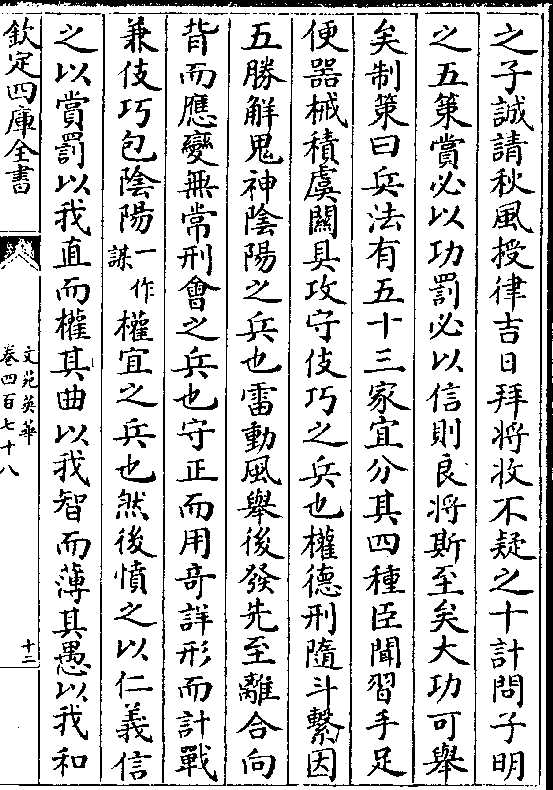 之子誠請秋風授律吉日拜將收不疑之十計問子明
之五策賞必以功罰必以信則良將斯至矣大功可舉
矣制策曰兵法有五十三家宜分其四種臣聞習手足
便器械積虞關具攻守伎巧之兵也權德刑隨斗繫因
五勝解鬼神陰陽之兵也雷動風舉後發先至離合向
背而應變無常刑會之兵也守正而用竒詳形而計戰
兼伎巧包陰陽一作謀權宜之兵也然後憤之以仁義信
之以賞罰以我直而權其曲以我智而薄其愚以我和
欽定四庫全書
文苑英華
卷四百七十八
十三